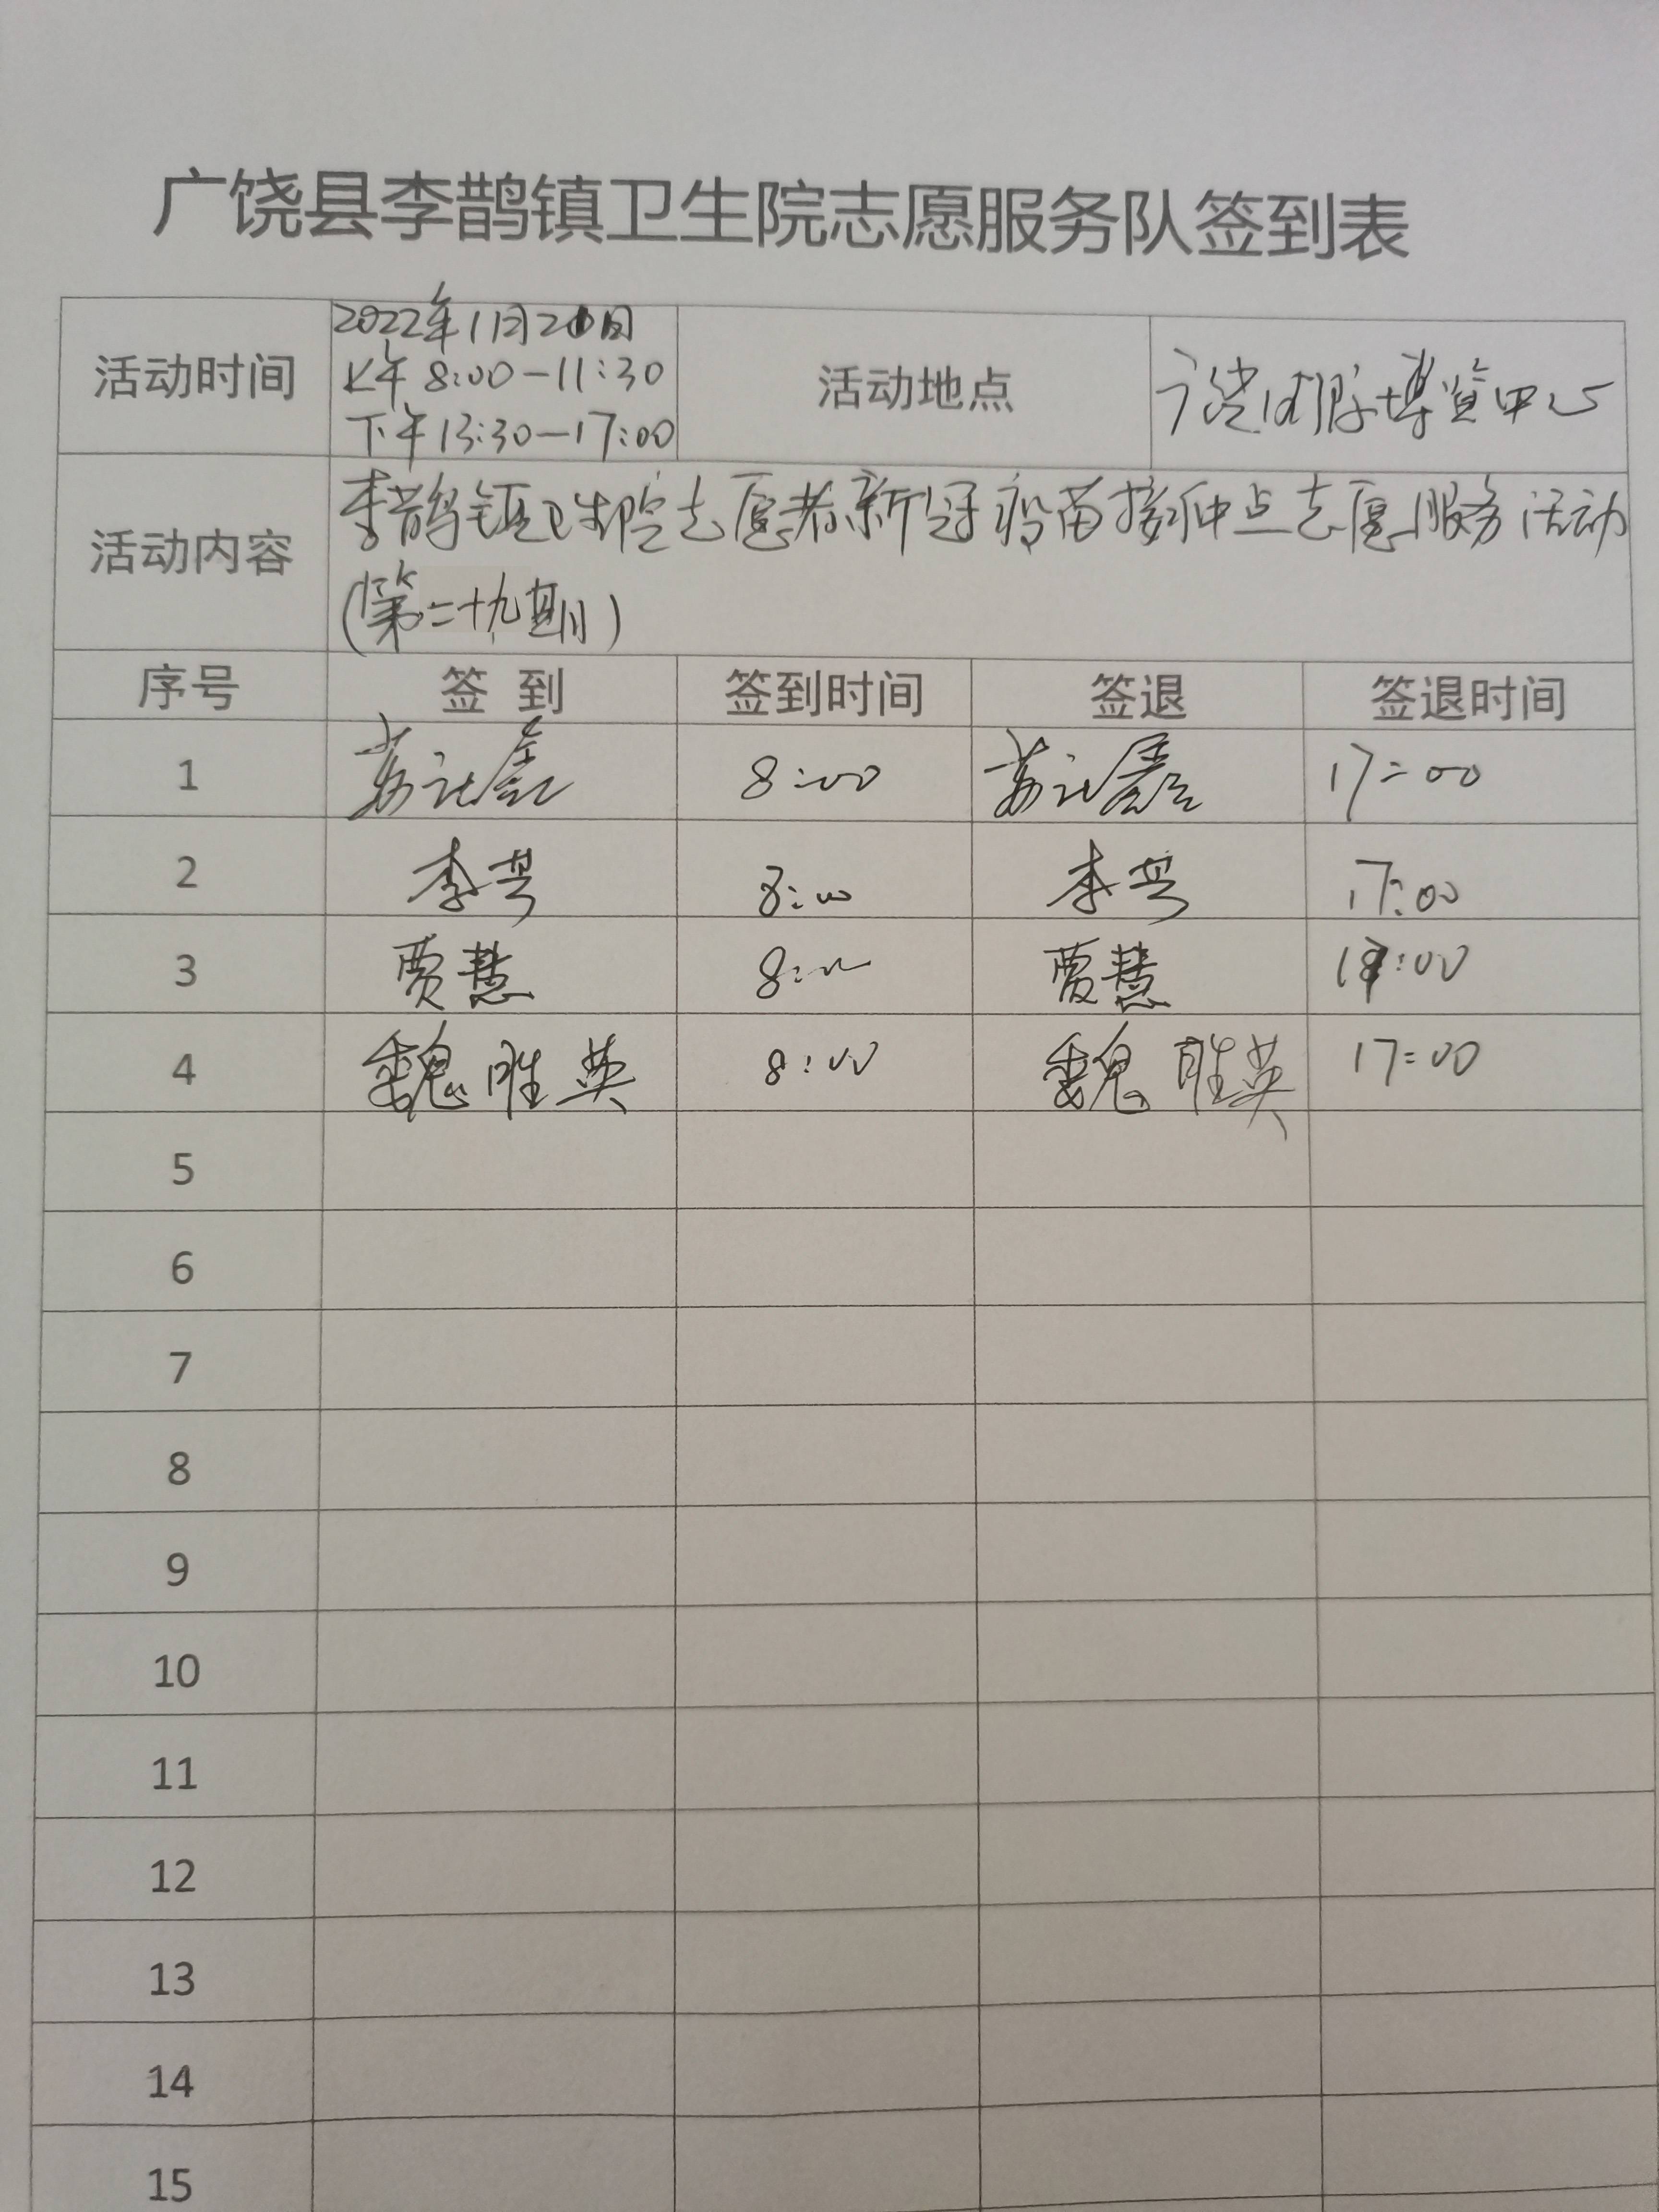 广饶县李鹊镇卫生院志愿服务队签到表
活动时间 2022年11月2日 活动地点 博览中心
上午8:00-11:30
下午13:30-17:00
活动内容 李鹊镇卫生院志愿者新冠疫苗接种点志愿服务活动
(第二十九期)
序号 签到 签到时间 签退 签退时间
1 8:00 17:00
2 李 8:00 李 17:00
3 贾慧 8:00 贾慧 17:00
4 魏胜英 8:00 魏胜英 17:00
5
6
7
8
9
10
11
12
13
14
15